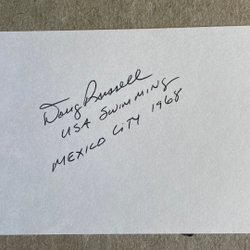 Doug Russell
USA SWIMMING
MEXICO CITY 1968